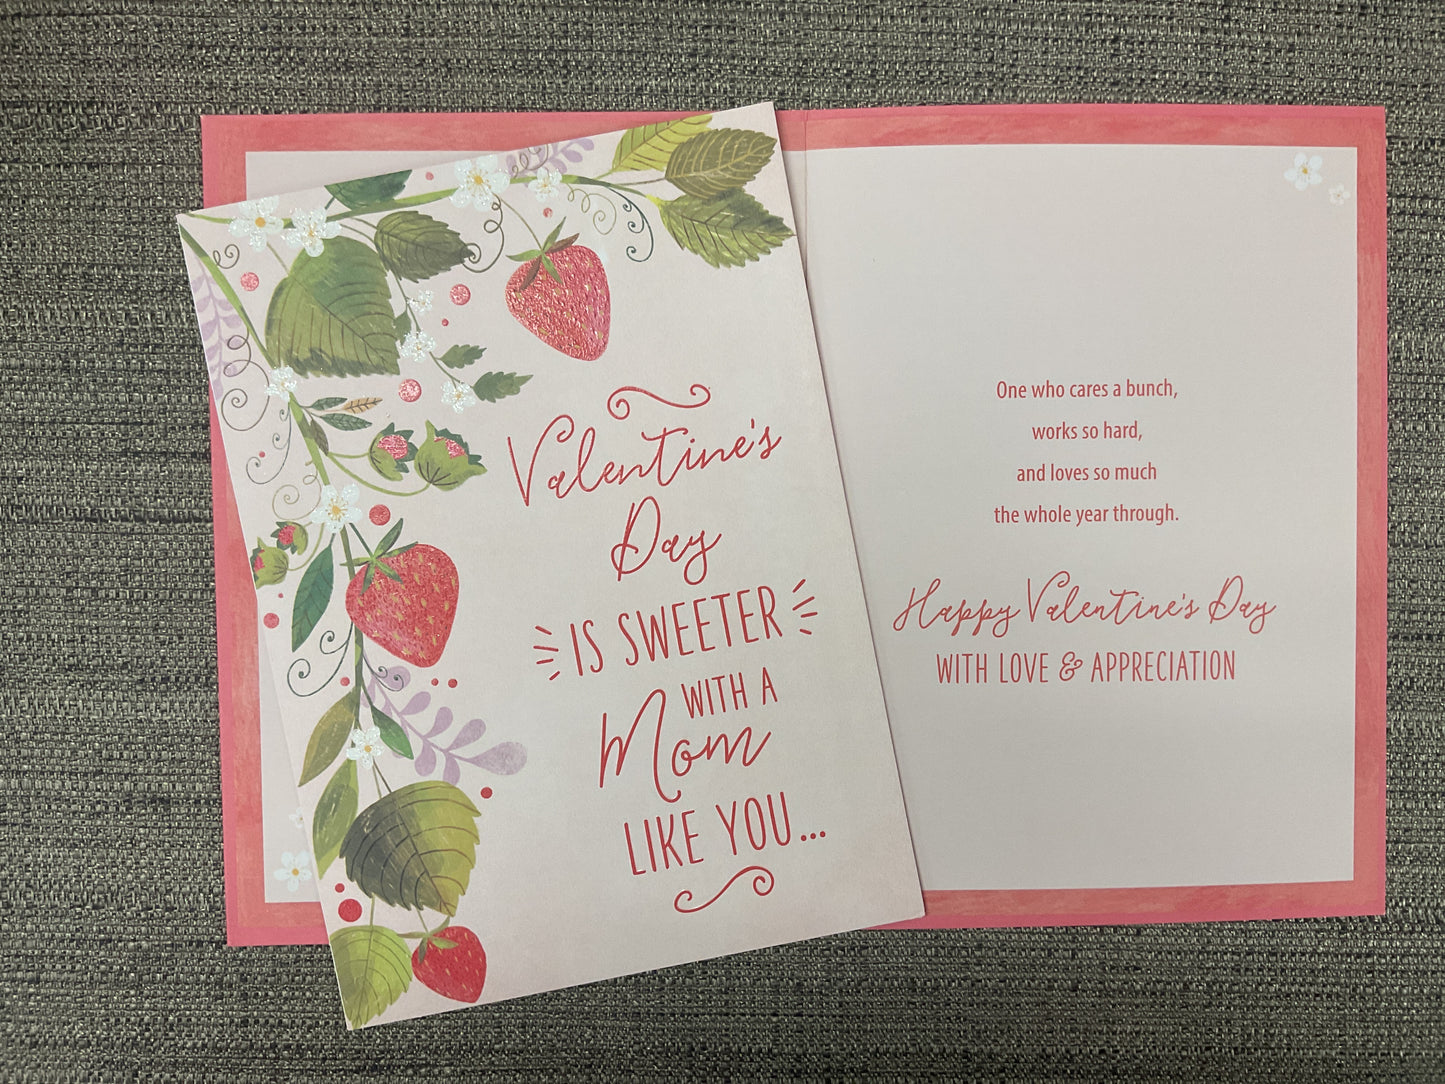 Valentine's
Day
IS SWEETER
WITH A
Mom
LIKE YOU...
One who cares a bunch,
works so hard,
and loves so much
the whole year through.
Happy Valentine's Day
WITH LOVE & APPRECIATION